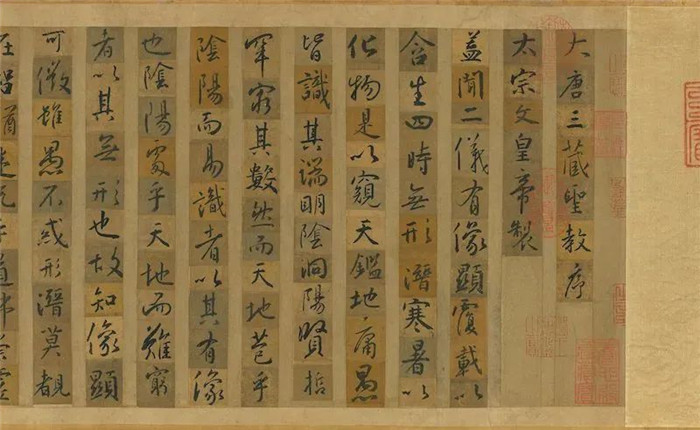 大唐三藏聖教序
太宗文皇帝製
蓋聞二儀有像顯覆載以
含生四時無形潛寒暑以
化物是以窺天鑑地庸愚
皆識其端明陰洞陽賢哲
罕窮其數然而天地苞乎
陰陽而易識者以其有像
也陰陽處乎天地而難窮
者以其無形也故知像顯
可徵雖愚不惑形潛莫覩